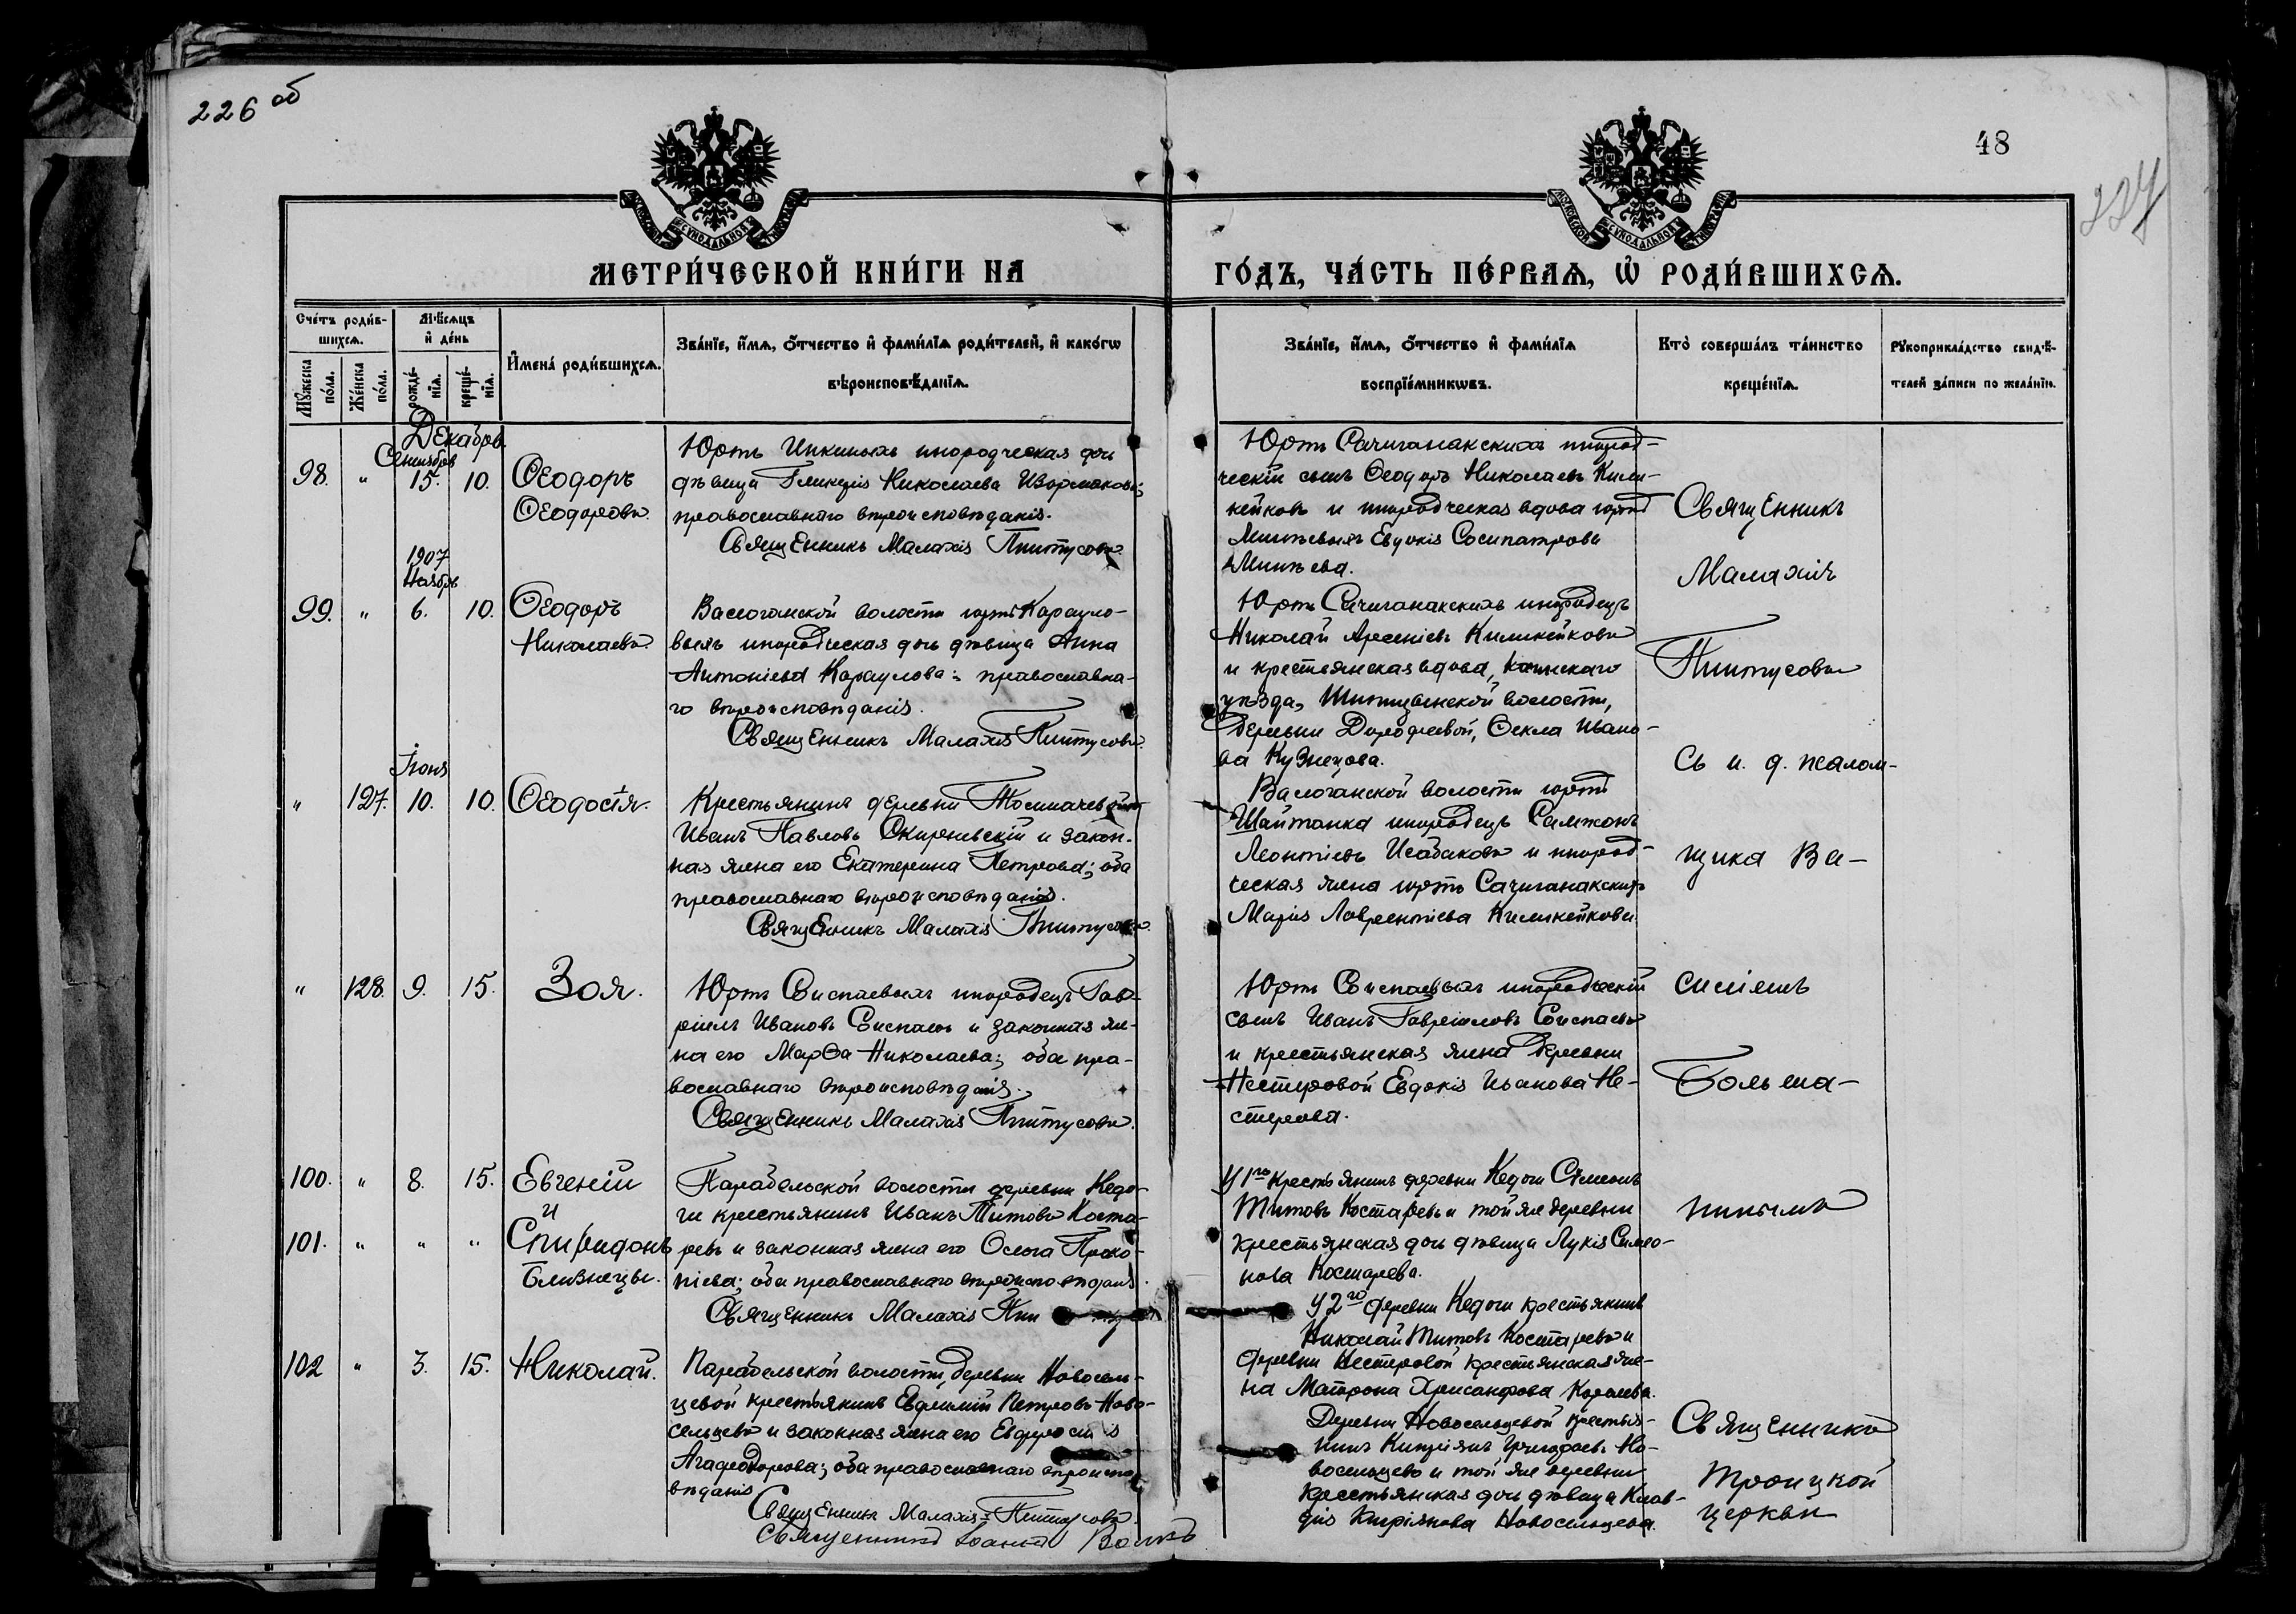 226 об
48
227
МЕТРИ́ЧЕСКОЙ КНИ́ГИ НА
ГО́ДЪ, ЧА́СТЬ ПЕ́РВАѦ, Ѡ҆ РОДИ́ВШИХСѦ.
Сче́тъ роди́в-
шихсѧ.
Мꙋ́жеска по́ла.
Же́нска по́ла.
Мѣ́сѧцъ
и҆ де́нь
рожде́-
нїѧ.
креще́-
нїѧ.
И҆мена̀ роди́вшихсѧ.
Зва́нїе, и҆́мѧ, ѻ҆́тчество и҆ фами́лїѧ роди́телей, и҆ како́гѡ
вѣроисповѣ́данїѧ.
Зва́нїе, и҆́мѧ, ѻ҆́тчество и҆ фами́лїѧ
воспрїе́мникѡвъ.
Кто̀ соверша́лъ та́инство
креще́нїѧ.
Рꙋкоприкла́дство свидѣ́-
телей за́писи по жела́нїю.
Декабрь
Сентябрь
98. " 15. 10. Ѳеодоръ
Ѳеодоровъ.
Юртъ Инкиныхъ инородческая дочь
дѣвица Гликерія Николаева
православнаго вѣроисповѣданія.
Священникъ Малахія Пиитусовъ
Юртъ Сачиганакскихъ инород-
ческій сынъ Ѳеодоръ Николаевъ Кили-
нейковъ и инородческая вдова юртъ
Евдокія Сосипатрова
Минѣева.
1907
Ноябрь
99. " 6. 10. Ѳеодоръ
Николаевъ
Васюганской волости юртъ Карауло-
выхъ инородческая дочь дѣвица Анна
Антоніева Караулова; православна-
го вѣроисповѣданія.
Священникъ Малахія Пиитусовъ
Юртъ Сачиганакскихъ инородецъ
Николай Арсеніевъ Килинейковъ
и крестьянская вдова, Каинскаго
уѣзда, волости,
деревни Дорофеевой, Ѳекла Ивано-
ва Кузнецова.
Іюня
" 127. 10. 10. Ѳеодосія.
Крестьянинъ деревни Толмачевой
Иванъ Павловъ Скирневскій и закон-
ная жена его Екатерина Петрова; оба
православнаго вѣроисповѣданія.
Священникъ Малахія Пиитусовъ
Васюганской волости юртъ
Шайтанка инородецъ Сампсонъ
Леонтіевъ и инород-
ческая жена юртъ Сачиганакскихъ
Марія Лаврентіева Килинейкова.
" 128. 9. 15. Зоя.
Юртъ Соиспаевыхъ инородецъ Гав-
ріилъ Ивановъ Соиспаевъ и законная же-
на его Марѳа Николаева; оба пра-
вославнаго вѣроисповѣданія.
Священникъ Малахія Пиитусовъ.
Юртъ Соиспаевыхъ инородческій
сынъ Иванъ Гавріиловъ Соиспаевъ
и крестьянская жена деревни
Нестеровой Евдокія Иванова Не-
стерова.
Священникъ
Малахія
Пиитусовъ
Съ и. д. псалом-
щика Ва-
силіемъ
Больша-
нинымъ
100. " 8. 15. Евгеній
и
101. " " " Спиридонъ
близнецы.
Парабельской волости деревни Кедо-
ги крестьянинъ Иванъ Титовъ Коста-
ревъ и законная жена его Ольга Проко-
піева; оба православнаго вѣроисповѣданія.
Священникъ Малахія Пии
У 1го крестьянинъ деревни Кедоги Симеонъ
Титовъ Костаревъ и той же деревни
крестьянская дочь дѣвица Лукія Симео-
нова Костарева.
У 2го деревни Кедоги крестьянинъ
Николай Титовъ Костаревъ и
деревни Нестеровой крестьянская же-
на Матрона Хрисанфова Королева.
102 " 3. 15. Николай.
Парабельской волости, деревни Новосель-
цевой крестьянинъ Евфимій Петровъ Ново-
сельцевъ и законная жена его Евфросинія
Агафодорова; оба православнаго вѣроиспо-
вѣданія
Священникъ Малахія Пиитусовъ.
Священникъ Іоаннъ
Деревни Новосельцевой крестья-
нинъ Кипріянъ Но-
восельцевъ и той же деревни
крестьянская дочь дѣвица Клав-
дія Кипріянова Новосельцева.
Священникъ
Троицкой
церкви